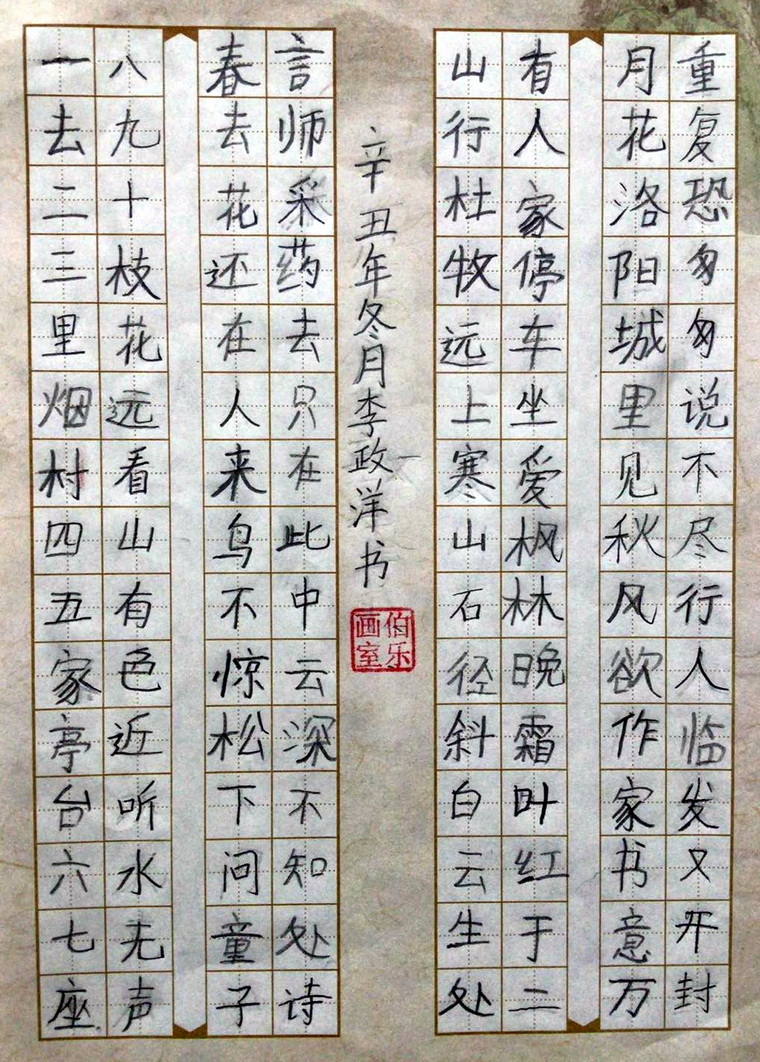 一去二三里烟村四五家亭台六七座
八九十枝花远看山有色近听水无声
春去花还在人来鸟不惊松下问童子
言师采药去只在此中云深不知处诗
辛丑年冬月李政洋书
伯乐画室
山行杜牧远上寒山石径斜白云生处
有人家停车坐爱枫林晚霜叶红于二
月花洛阳城里见秋风欲作家书意万
重复恐匆匆说不尽行人临发又开封